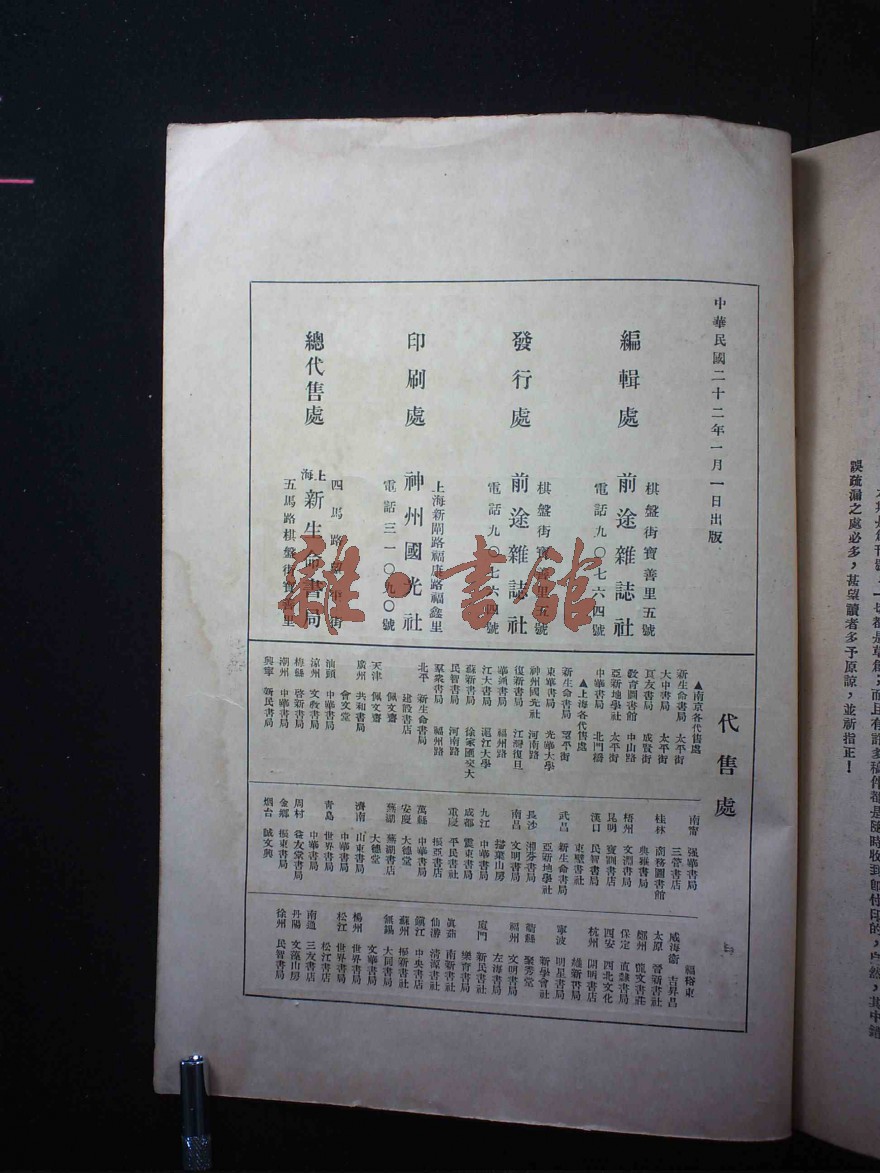 中華民國二十二年一月一日出版
編輯處
棋盤街寶善里五號
前途雜誌社
電話九〇七六四號
發行處
棋盤街寶善里五號
前途雜誌社
電話九〇七六四號
印刷處
上海新閘路福康路福鑫里
神州國光社
電話三一〇九〇號
總代售處
四馬路
街
上海新生命書局
五馬路棋盤街寶善里
雜·書館
代售處
▲南京各代售處
新生命書局 太平街
大中書局 太平街
成賢街
教育圖書館 中山路
亞新地學社 太平街
中華書局 北門橋
▲上海各代售處
新生命書局 望平街
東華書局 光華大學
神州國光社 河南路
復新書局 江灣復旦
華通書局 福州路
江大書局 滬江大學
蘇新書局 徐家匯交大
民智書局 河南路
羣衆書局 福州路
北平 新生命書局
建設書店
佩文齋
天津 佩文齋
廣州 共和書局
會文堂
汕頭 中華書局
文教書局
梅縣 啓新書局
潮州 中華書局
興寧 新民書局
南甯 強華書局
三管書店
桂林 商務圖書館
典雅書局
梧州 文淵書局
昆明
漢口 民智書局
東璧書社
武昌 新生命書局
亞新地學社
長沙
南昌 文明書局
掃葉山房
九江 中華書局
成都
重慶 平民書社
振亞書店
萬縣 中華書局
安慶 大德堂
蕪湖 蕪湖書店
大德堂
濟南 山東書局
中華書局
青島 世界書局
中華書局
周村 益友堂書局
金鄉 振東書局
烟台 誠文興
福裕東
威海衛 吉昇昌
太原 晉新書社
鄭州
保定 直隸書局
西安 西北文化
杭州
維新書局
寧波 明星書局
新學會社
聚秀堂
福州 文明書局
左海書局
廈門 新民書社
樂育書局
南新書社
仙游 清源書社
鎭江 中央書店
蘇州
無錫 大同書局
文華書局
揚州 世界書局
松江 世界書局
松江書店
南通 三友書店
丹陽
徐州 民智書局
誤疏漏之處必多，甚望讀者多予原諒，並祈指正！